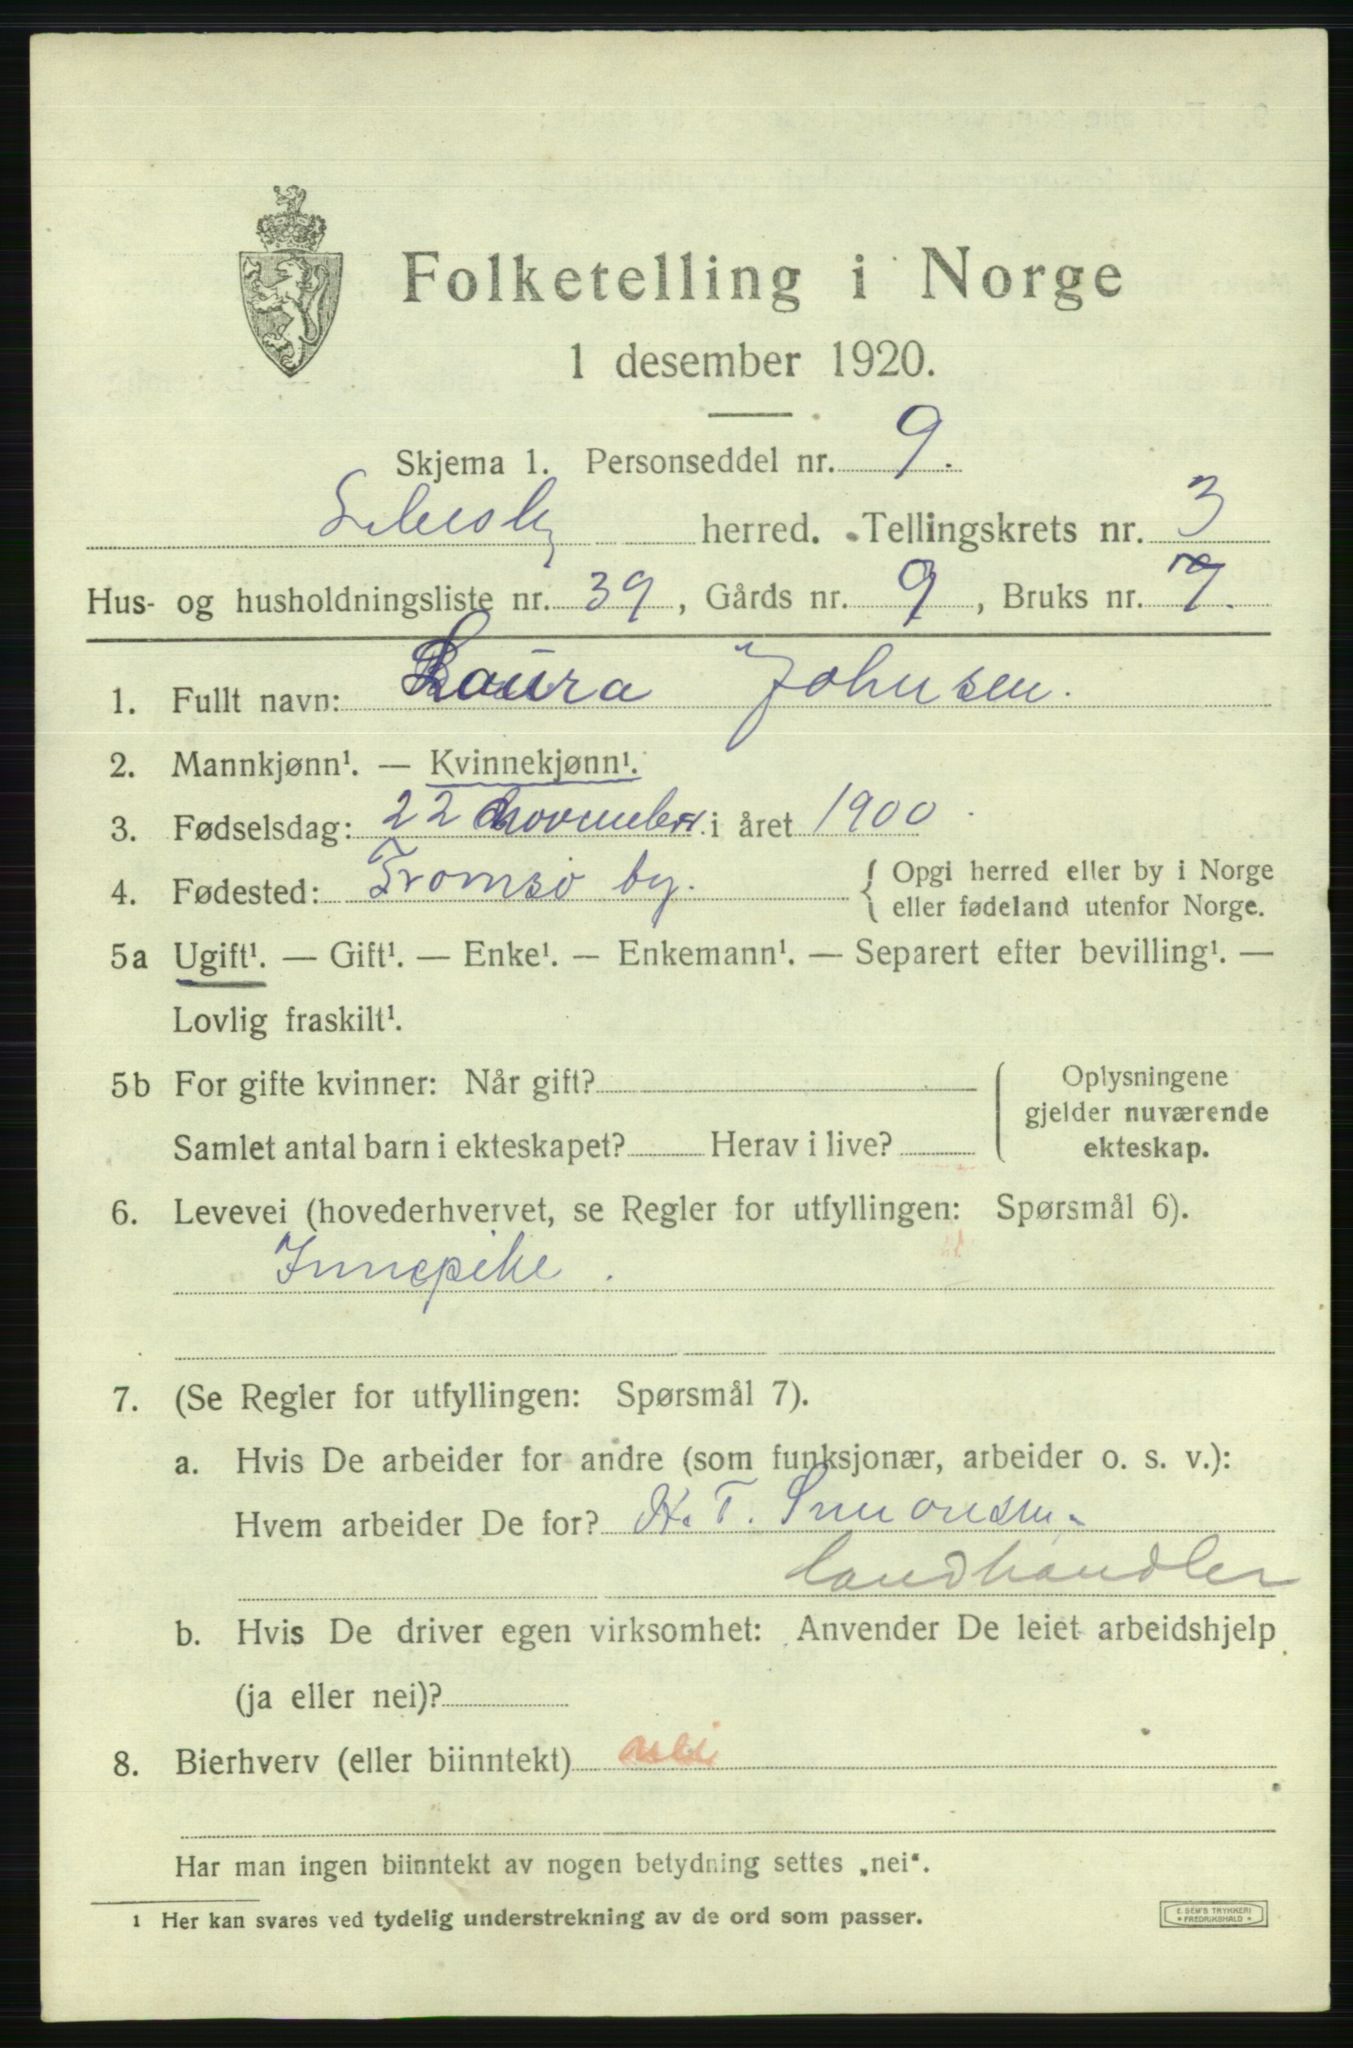 Folketelling i Norge
1 desember 1920.
Skjema 1. Personseddel nr. 9.
Lebesby herred. Tellingskrets nr. 3
Hus- og husholdningsliste nr. 39, Gårds nr. 9, Bruks nr. 7.
1. Fullt navn: Laura Johnsen.
2. Mannkjønn¹. — Kvinnekjønn¹.
3. Fødselsdag: 22 november i året 1900.
4. Fødested: Tromsø by. { Opgi herred eller by i Norge
eller fødeland utenfor Norge.
5a Ugift¹. — Gift¹. — Enke¹. — Enkemann¹. — Separert efter bevilling¹. —
Lovlig fraskilt¹.
5b For gifte kvinner: Når gift?
Samlet antal barn i ekteskapet? Herav i live?
Oplysningene
gjelder nuværende
ekteskap.
6. Levevei (hovederhvervet, se Regler for utfyllingen: Spørsmål 6).
Innepike.
7. (Se Regler for utfyllingen: Spørsmål 7).
a. Hvis De arbeider for andre (som funksjonær, arbeider o. s. v.):
Hvem arbeider De for? H. T. Simonsen
landhandler
b. Hvis De driver egen virksomhet: Anvender De leiet arbeidshjelp
(ja eller nei)?
8. Bierhverv (eller biinntekt) nei
Har man ingen biinntekt av nogen betydning settes „nei“.
1 Her kan svares ved tydelig understrekning av de ord som passer.
E. SEM'S TRYKKERI
• FREDRIKSHALD •